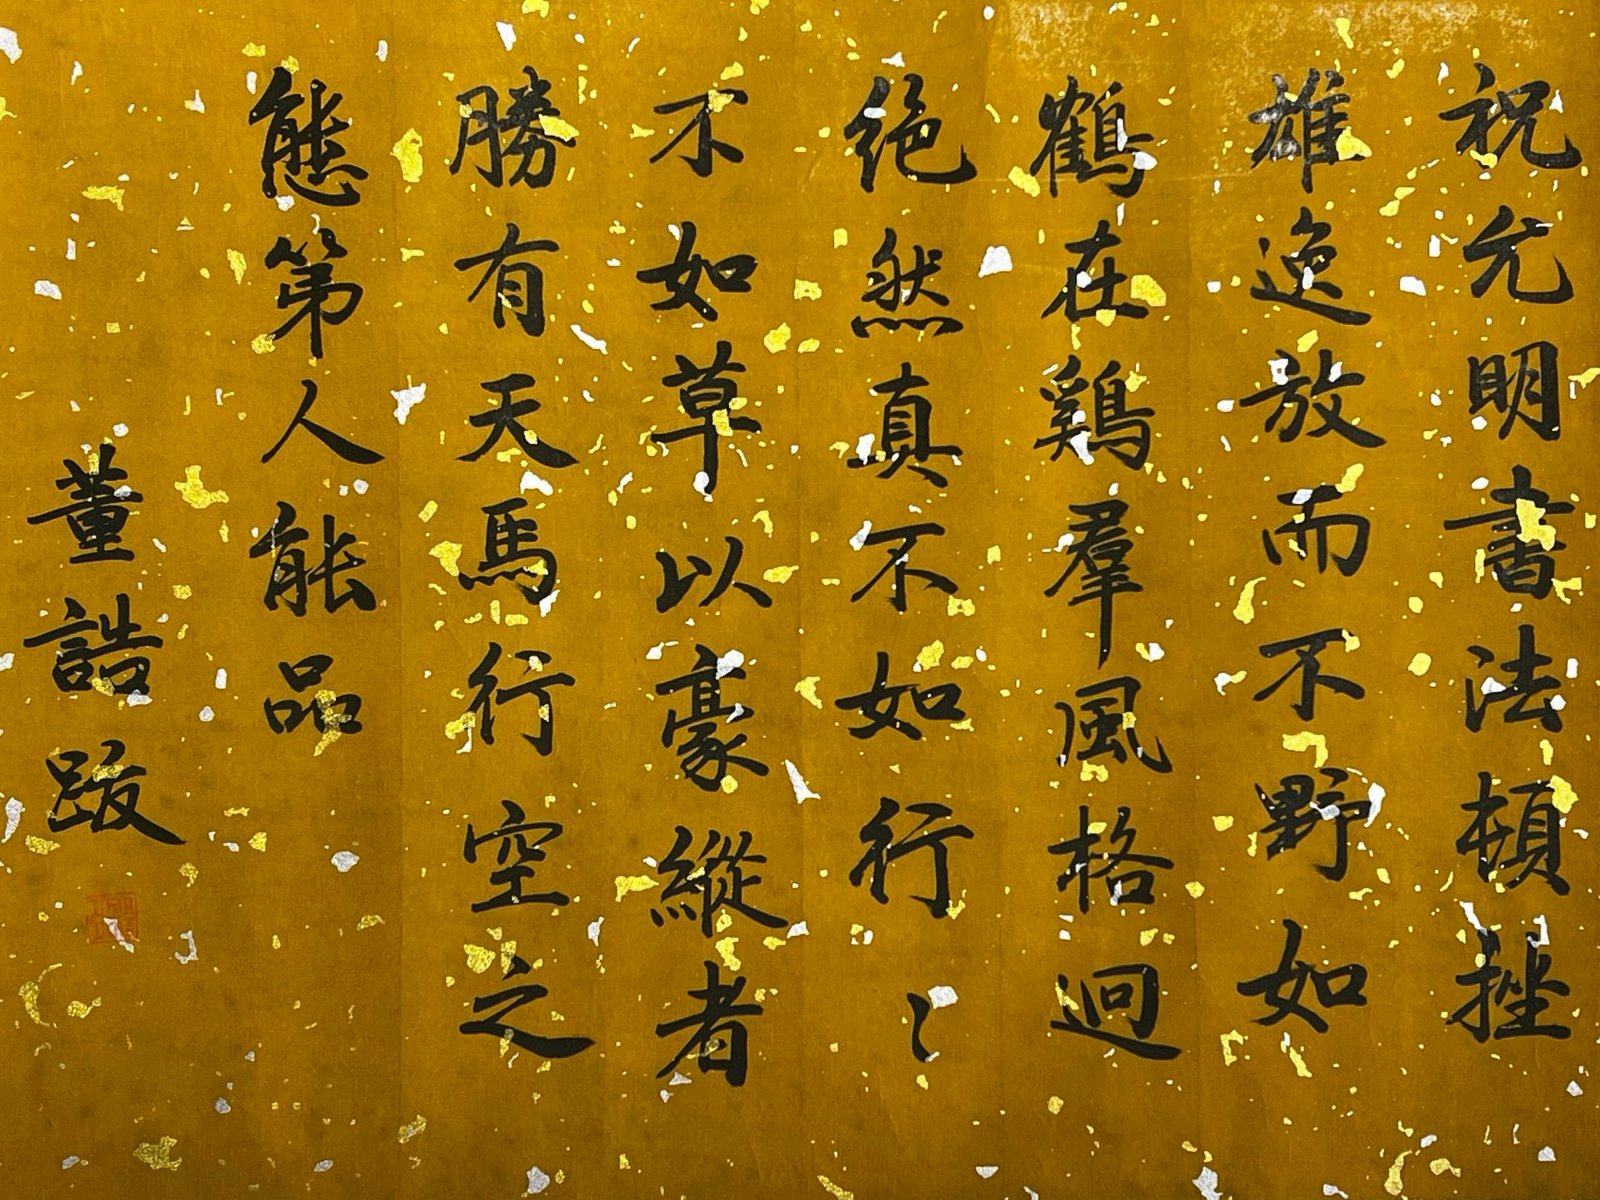 祝允明書法頓挫
雄逸放而不野如
鶴在鷄羣風格迥
絶然真不如行〻
不如草以豪縱者
勝有天馬行空之
態第人能品
董誥跋